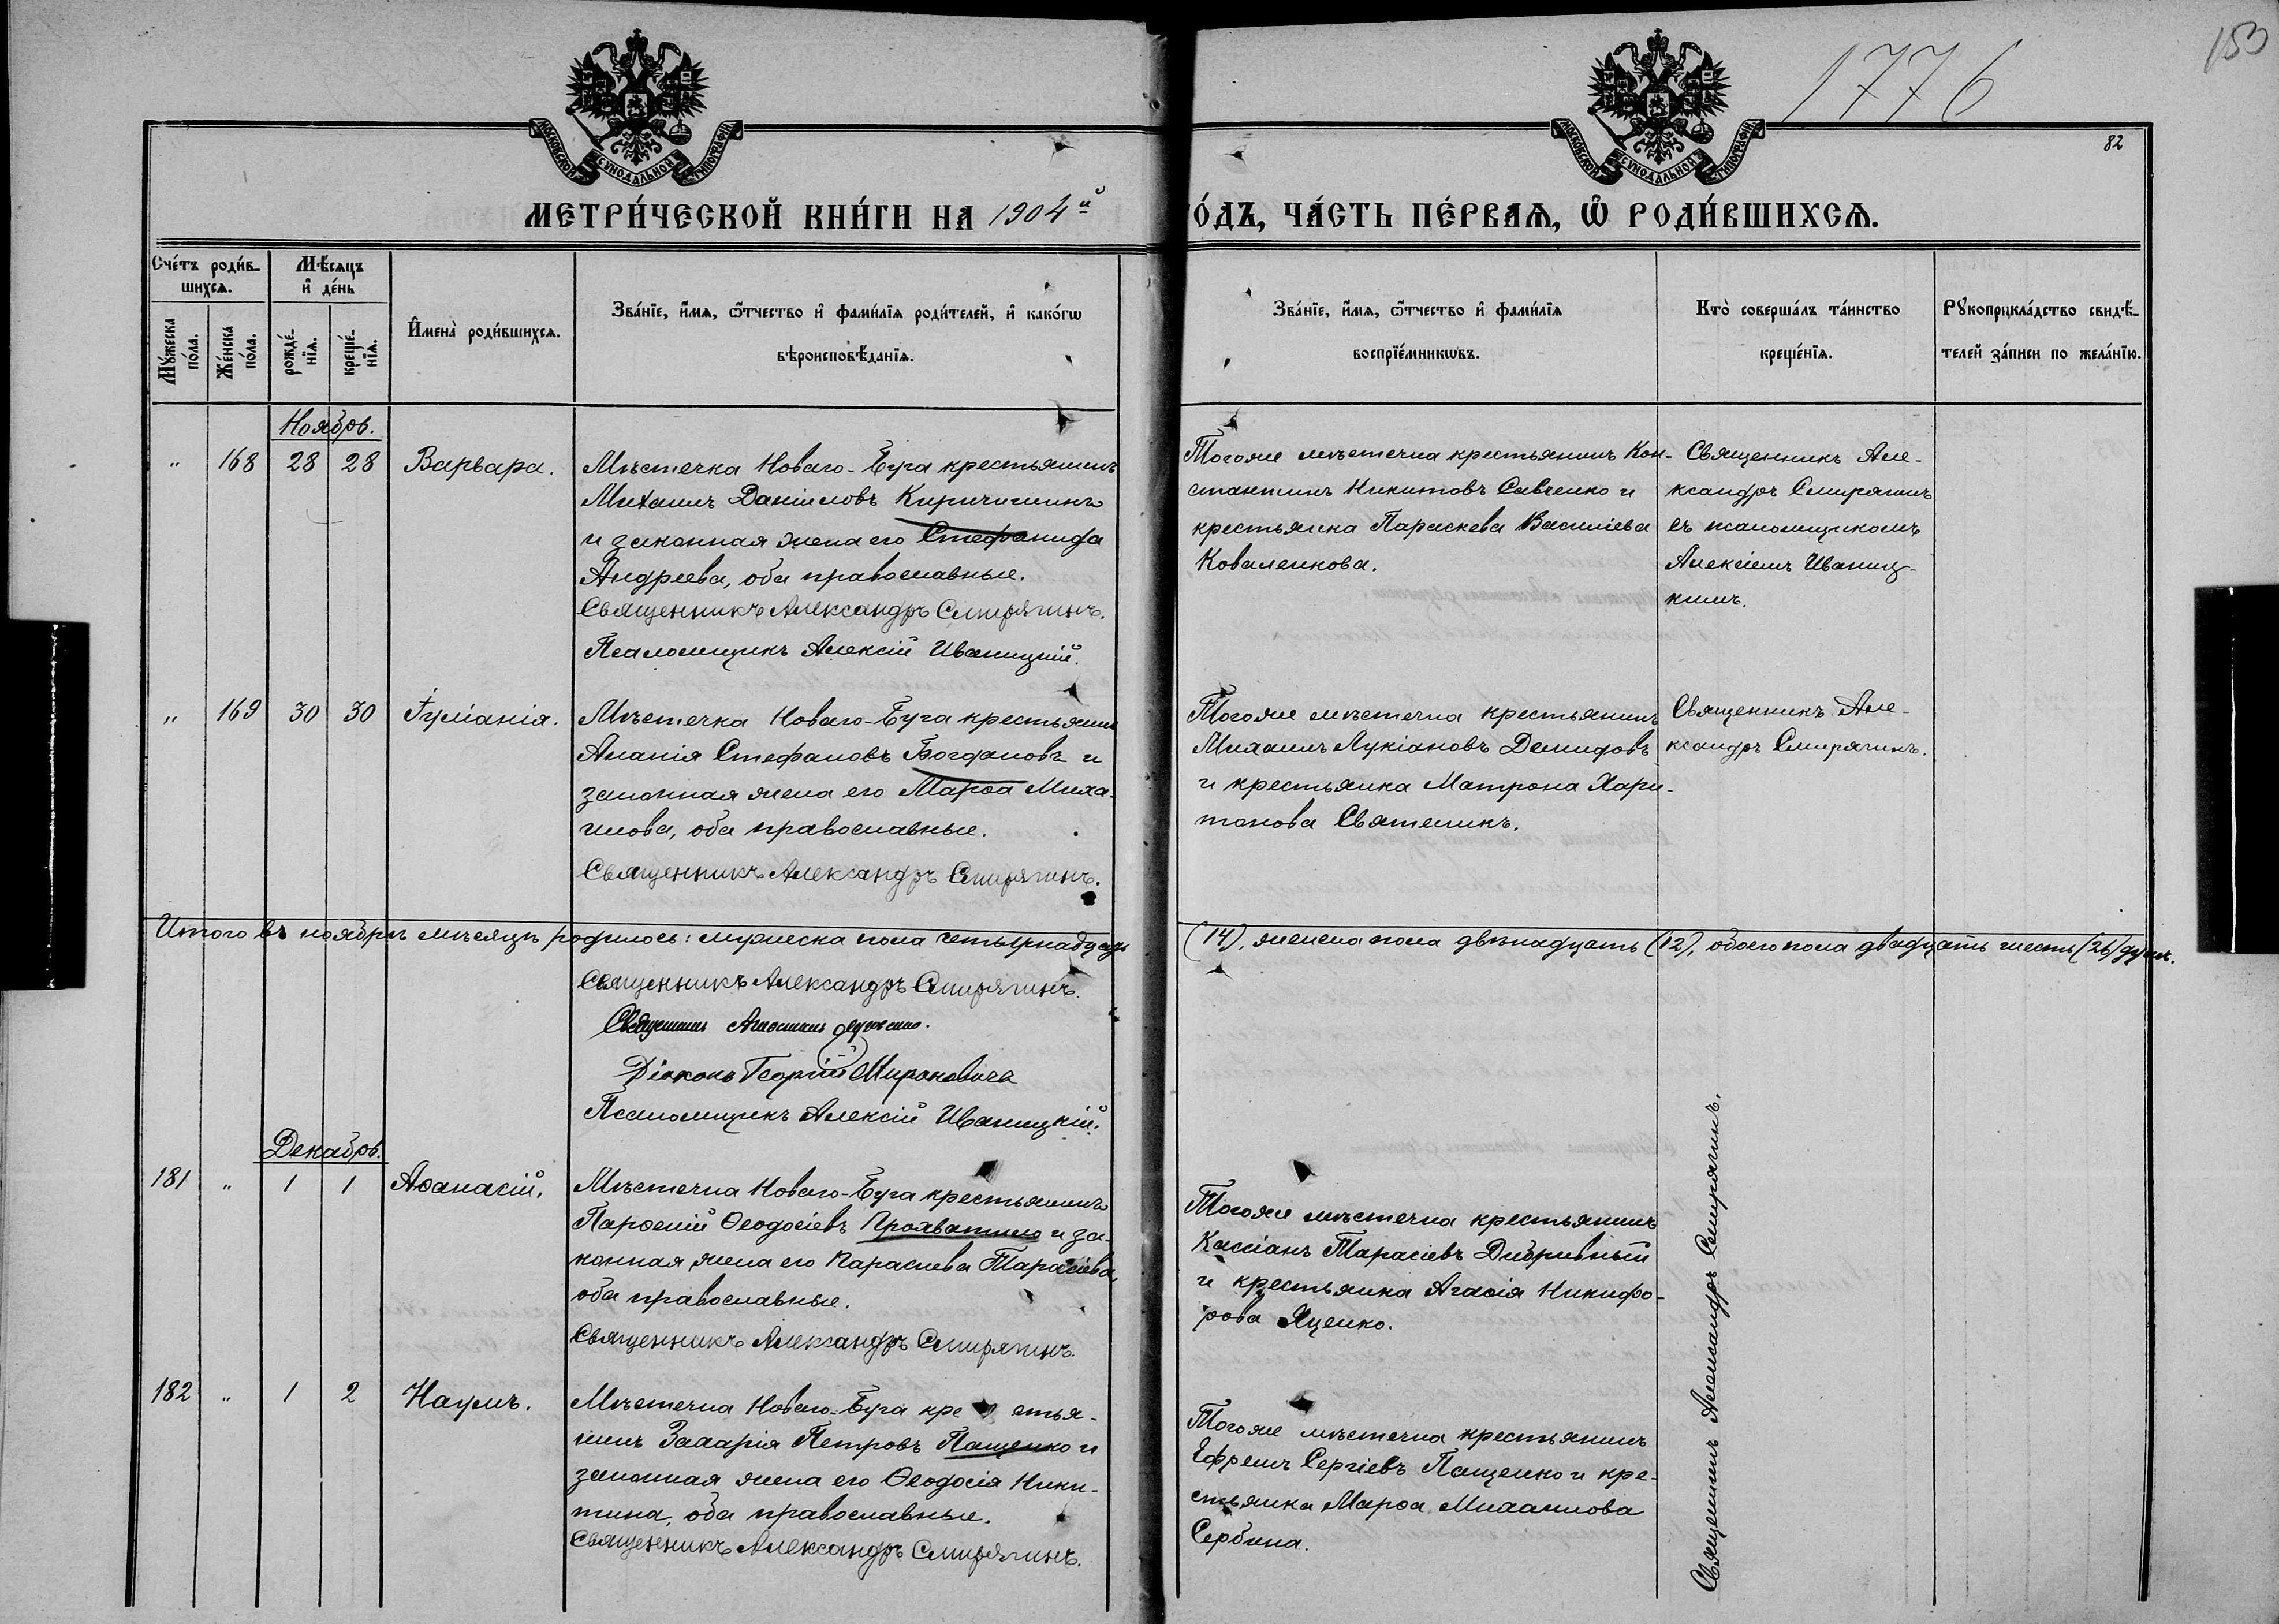 1776
153
82
МОСКОВСКОЙ СѴНОДАЛЬНОЙ ТИПОГРАФІИ
МОСКОВСКОЙ СѴНОДАЛЬНОЙ ТИПОГРАФІИ
МЕТРИ́ЧЕСКОЙ КНИ́ГИ НА 1904й
ГО́ДЪ, ЧА́СТЬ ПЕ́РВАѦ, Ѽ РОДИ́ВШИХСѦ.
Сче́тъ роди́в-
шихсѧ.
Мꙋ́жеска по́ла.
Же́нска по́ла.
Мѣ́сѧцъ и҆ де́нь
рожде́-нїѧ.
креще́-нїѧ.
И҆мена̀ роди́вшихсѧ.
Зва́нїе, и҆́мѧ, ѻ҆́тчество и҆ фами́лїѧ роди́телей, и҆ како́гѡ
вѣроисповѣ́данїѧ.
Зва́нїе, и҆́мѧ, ѻ҆́тчество и҆ фами́лїѧ
воспрїе́мникѡвъ.
Кто̀ соверша́лъ та́инство
креще́нїѧ.
Рꙋкоприкла́дство свидѣ́-
телей за́писи по жела́нїю.
Ноябрь.
„ 168 28 28 Варвара.
Мѣстечка Новаго-Буга крестьянинъ
Михаилъ Даніиловъ Киричишинъ
и законная жена его Стефанида
Андреева, оба православные.
Священникъ Александръ Смирягинъ.
Псаломщикъ Алексій Иваницкій.
Тогоже мѣстечка крестьянинъ Кон-
стантинъ Никитовъ Савченко и
крестьянка Параскева Василіева
Коваленкова.
Священникъ Але-
ксандръ Смирягинъ
съ псаломщикомъ
Алексіемъ Иваниц-
кимъ.
„ 169 30 30 Іуліанія.
Мѣстечка Новаго-Буга крестьянинъ
Ананія Стефановъ Богдановъ и
законная жена его Марѳа Миха-
илова, оба православные.
Священникъ Александръ Смирягинъ.
Тогоже мѣстечка крестьянинъ
Михаилъ Лукіановъ Демидовъ
и крестьянка Матрона Хари-
тонова Святеликъ.
Священникъ Але-
ксандръ Смирягинъ.
Итого въ ноябрѣ мѣсяцѣ родилось: мужеска пола четырнадцать
(14), женска пола двѣнадцать (12), обоего пола двадцать шесть (26) душъ.
Священникъ Александръ Смирягинъ.
Священникъ
Діаконъ Георгій Мироновичъ
Псаломщикъ Алексій Иваницкій.
Декабрь.
181 „ 1 1 Аѳанасій.
Мѣстечка Новаго-Буга крестьянинъ
Парѳеній Ѳеодосіевъ Прохватило и за-
конная жена его Параскева Тарасіева,
оба православные.
Священникъ Александръ Смирягинъ.
Тогоже мѣстечка крестьянинъ
Кассіанъ Тарасіевъ Дибривный
и крестьянка Агаѳія Никифо-
рова Яценко.
182 „ 1 2 Наумъ.
Мѣстечка Новаго-Буга крестья-
нинъ Захарія Петровъ Пащенко и
законная жена его Ѳеодосія Ники-
тина, оба православные.
Священникъ Александръ Смирягинъ.
Тогоже мѣстечка крестьянинъ
Ефремъ Сергіевъ Пащенко и кре-
стьянка Марѳа Михаилова
Сербина.
Священникъ Александръ Смирягинъ.